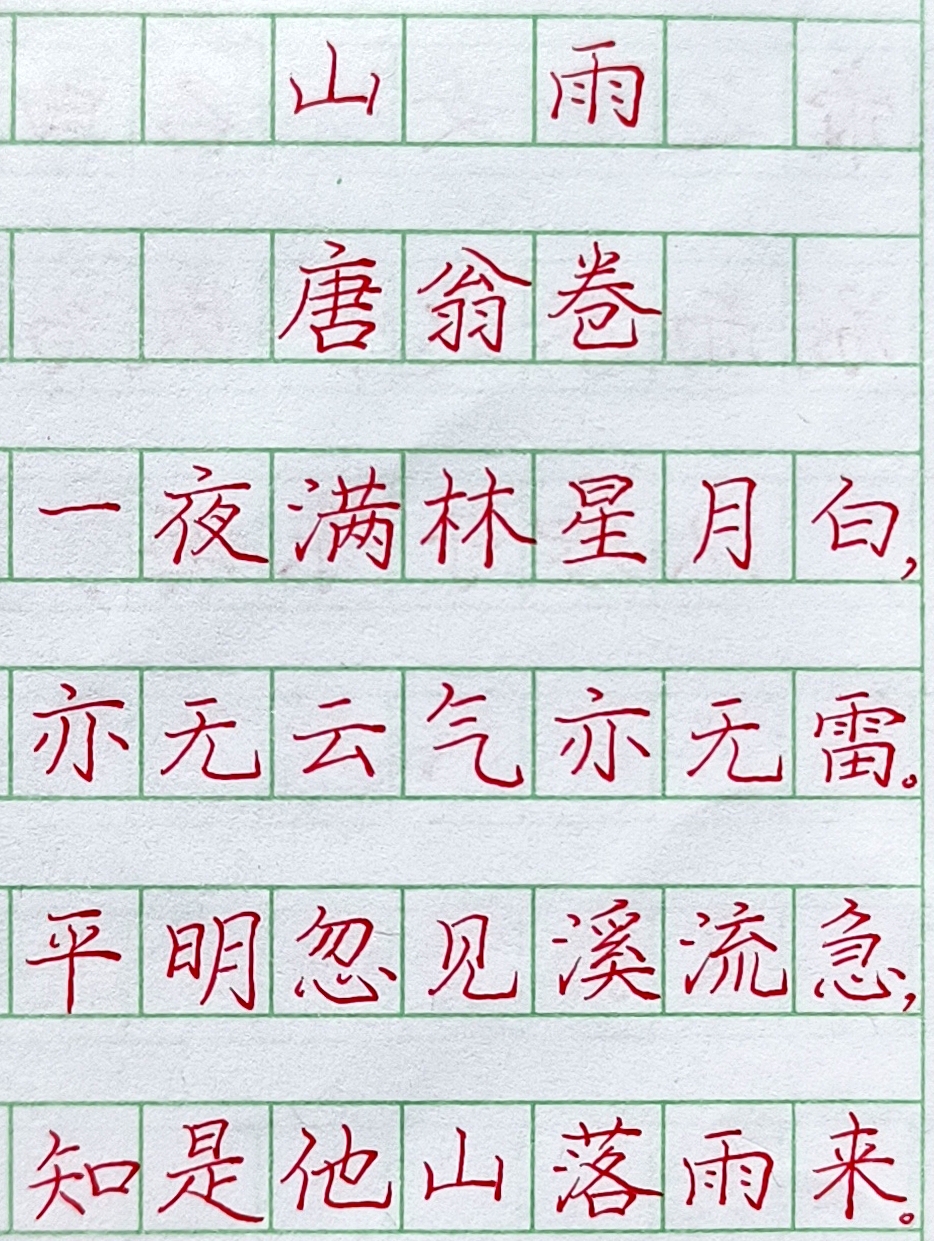 山雨
唐翁卷
一夜满林星月白,
亦无云气亦无雷。
平明忽见溪流急,
知是他山落雨来。